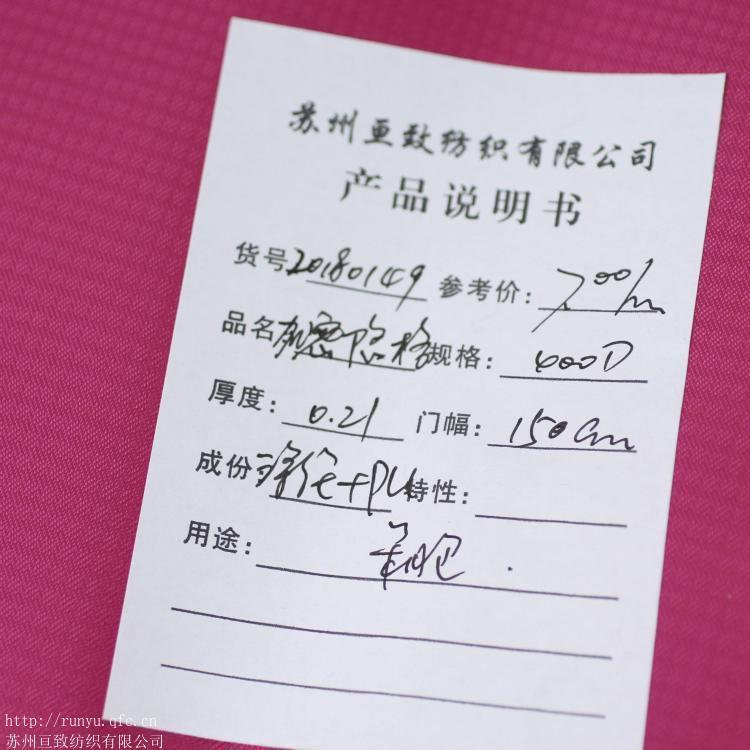 苏州亘致纺织有限公司
产品说明书
货号20180149 参考价: 7.00/m
品名加密阴格 规格: 400D
厚度: 0.21 门幅: 150cm
成份 涤纶+PU 特性:
用途: 箱包.
http://runyu.qfc.cn
苏州亘致纺织有限公司